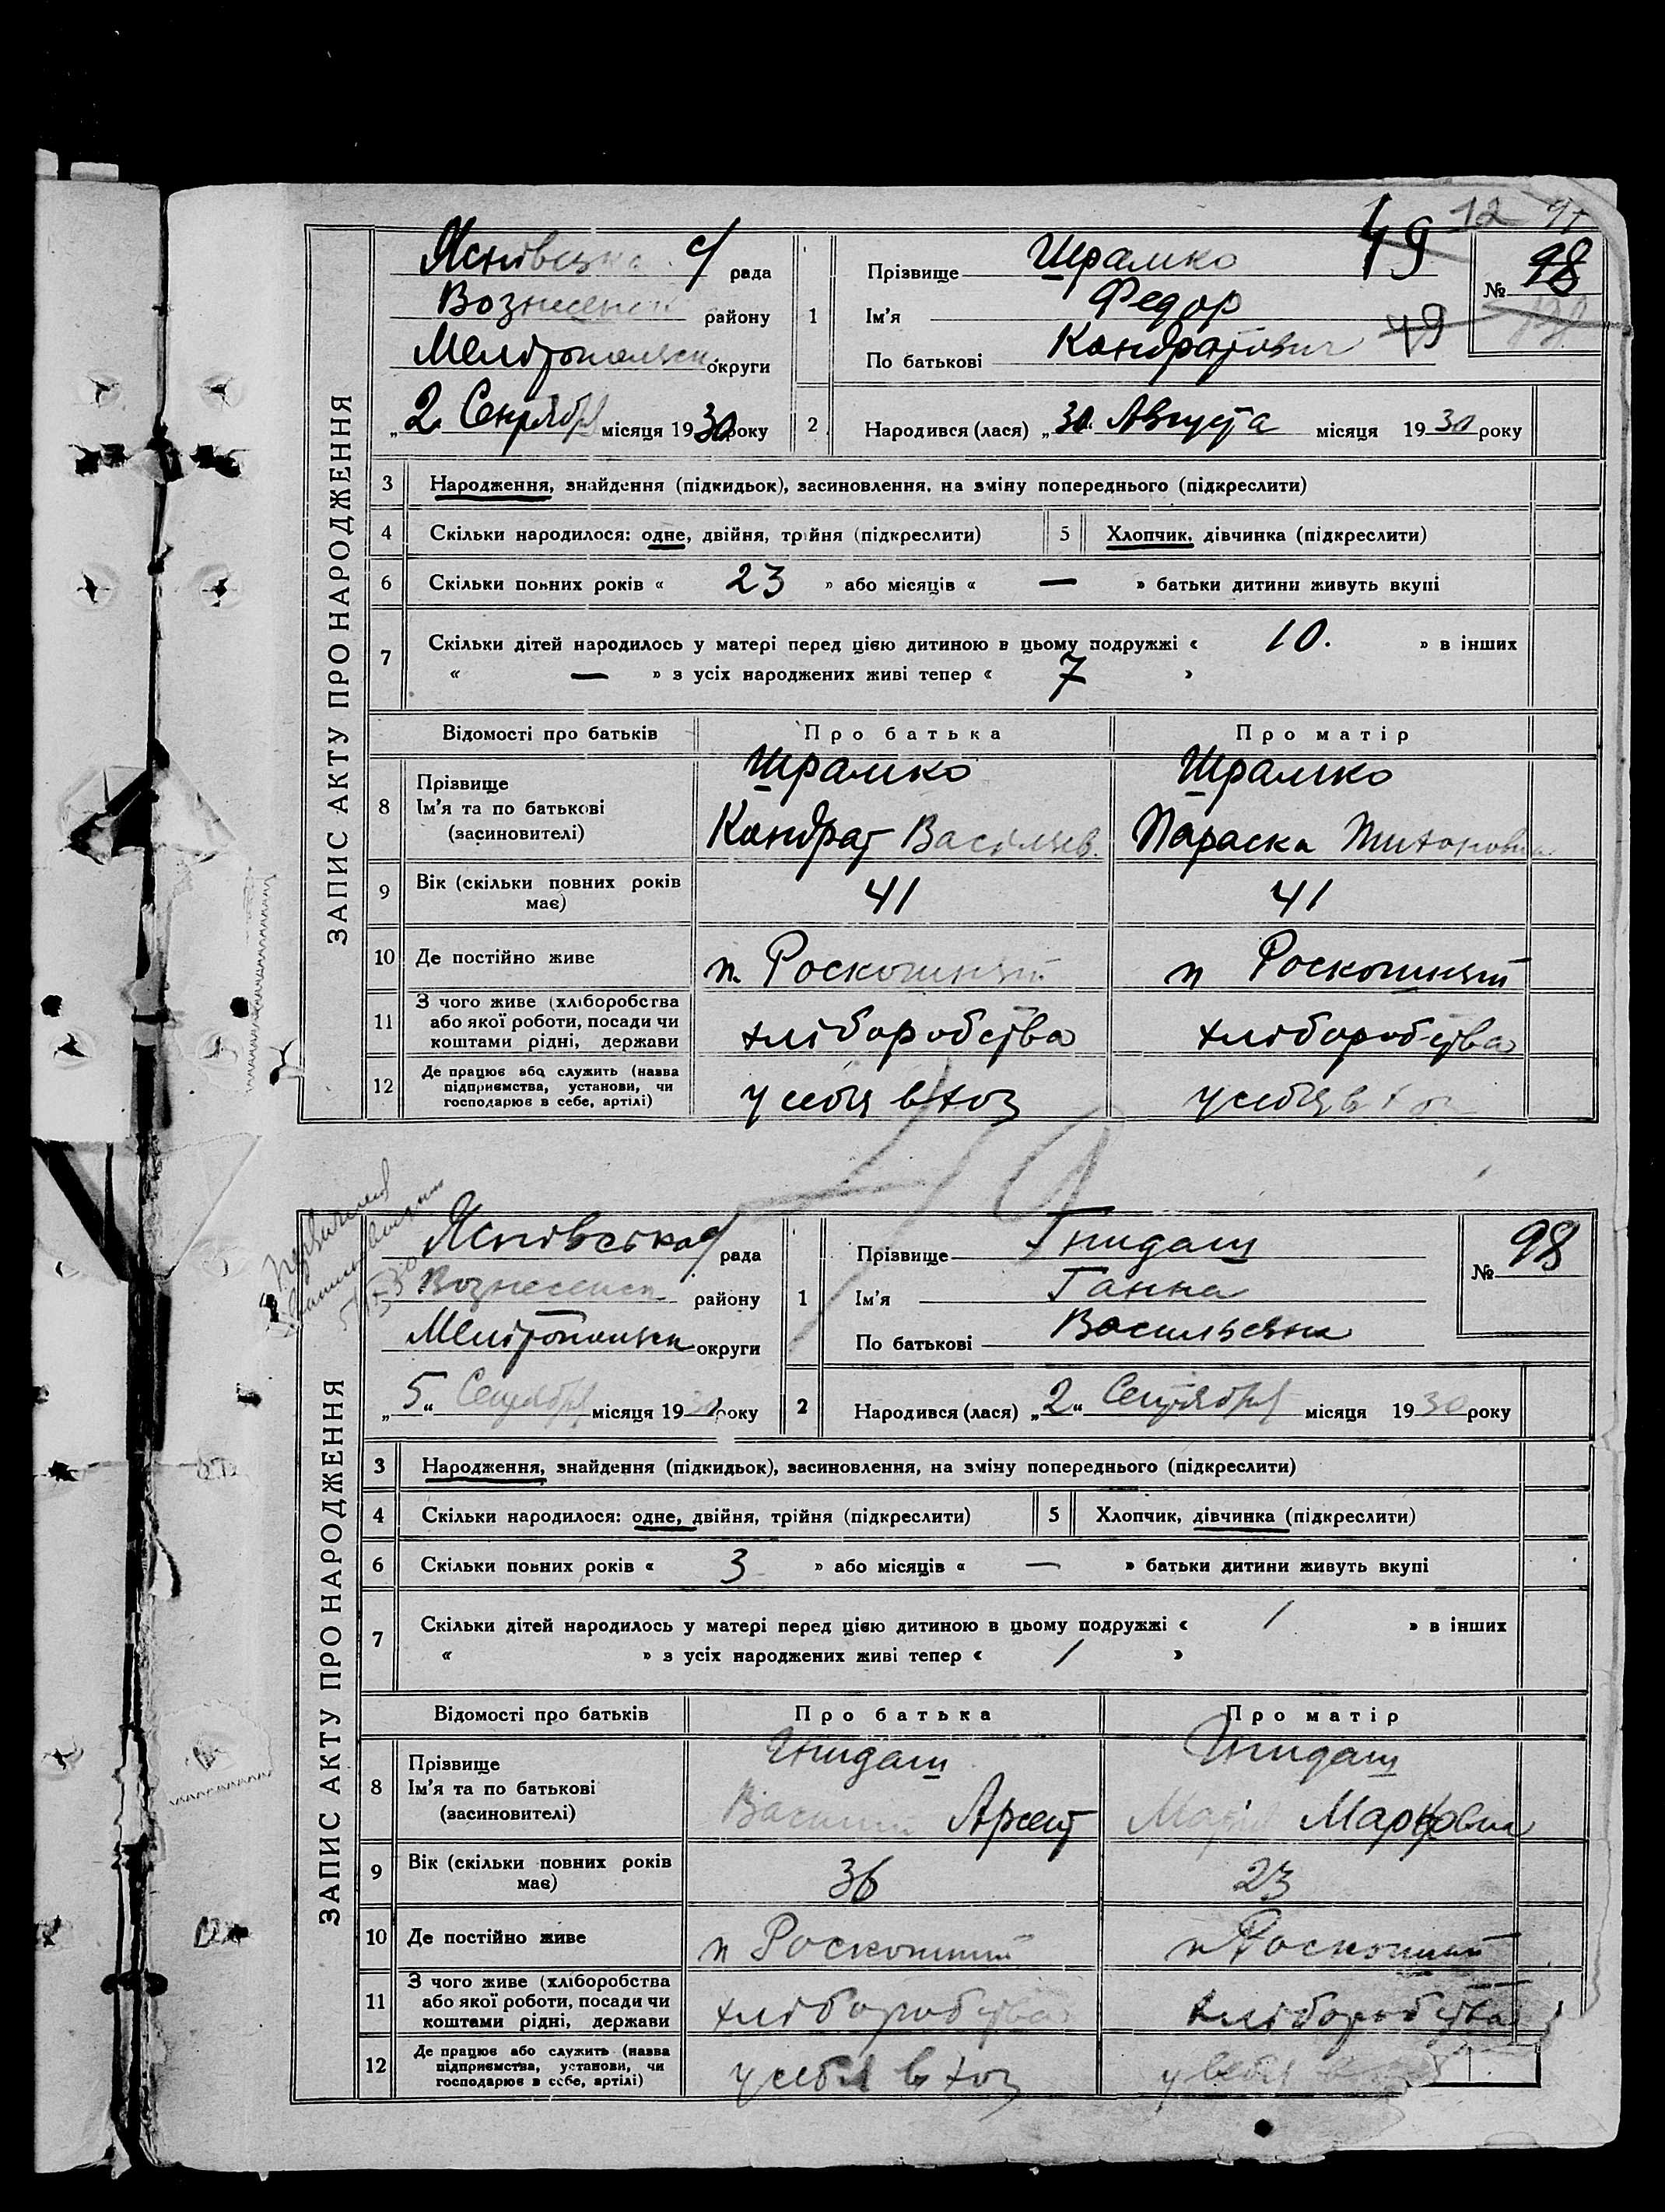 49 12
ЗАПИС АКТУ ПРО НАРОДЖЕННЯ
Яснівська с/ рада
Вознесенск району
Мелітопольськ округи
„2 Сентября місяця 1930 року
1 Прізвище Шрамко
Ім'я Федор
По батькові Кондратович 49
№ 98
2 Народився (лася) „30. Августа місяця 1930 року
3 Народження, знайдення (підкидьок), засиновлення, на зміну попереднього (підкреслити)
4 Скільки народилося: одне, двійня, трійня (підкреслити) 5 Хлопчик, дівчинка (підкреслити)
6 Скільки повних років « 23 » або місяців « — » батьки дитини живуть вкупі
7 Скільки дітей народилось у матері перед цією дитиною в цьому подружжі « 10. » в інших
« — » з усіх народжених живі тепер « 7 »
Відомості про батьків Про батька Про матір
8 Прізвище Шрамко Шрамко
Ім'я та по батькові Кондрат Васільев. Параска Титоновна
(засиновителі)
9 Вік (скільки повних років має) 41 41
10 Де постійно живе п. Роскошний п Роскошний
11 З чого живе (хліборобства
або якої роботи, посади чи хліборобства хліборобства
коштами рідні, держави
12 Де працює або служить (назва
підприємства, установи, чи у себя в хоз у себя в хоз
господарює в себе, артілі)
49
ЗАПИС АКТУ ПРО НАРОДЖЕННЯ
Яснівська с/ рада
Вознесенск району
Мелітопольск округи
„5“ Сентября місяця 1930 року
1 Прізвище Гнидаш
Ім'я Ганна
По батькові Васильевна
№ 98
2 Народився (лася) „2“ Сентября місяця 1930 року
3 Народження, знайдення (підкидьок), засиновлення, на зміну попереднього (підкреслити)
4 Скільки народилося: одне, двійня, трійня (підкреслити) 5 Хлопчик, дівчинка (підкреслити)
6 Скільки повних років « 3 » або місяців « — » батьки дитини живуть вкупі
7 Скільки дітей народилось у матері перед цією дитиною в цьому подружжі « 1 » в інших
« » з усіх народжених живі тепер « 1 »
Відомості про батьків Про батька Про матір
8 Прізвище Гнидаш Гнидаш
Ім'я та по батькові Василий Арсент Марія Марковна
(засиновителі)
9 Вік (скільки повних років має) 36 23
10 Де постійно живе п Роскошний п Роскошний
11 З чого живе (хліборобства
або якої роботи, посади чи хліборобства хліборобства
коштами рідні, держави
12 Де працює або служить (назва
підприємства, установи, чи у себя в хоз у себя
господарює в себе, артілі)